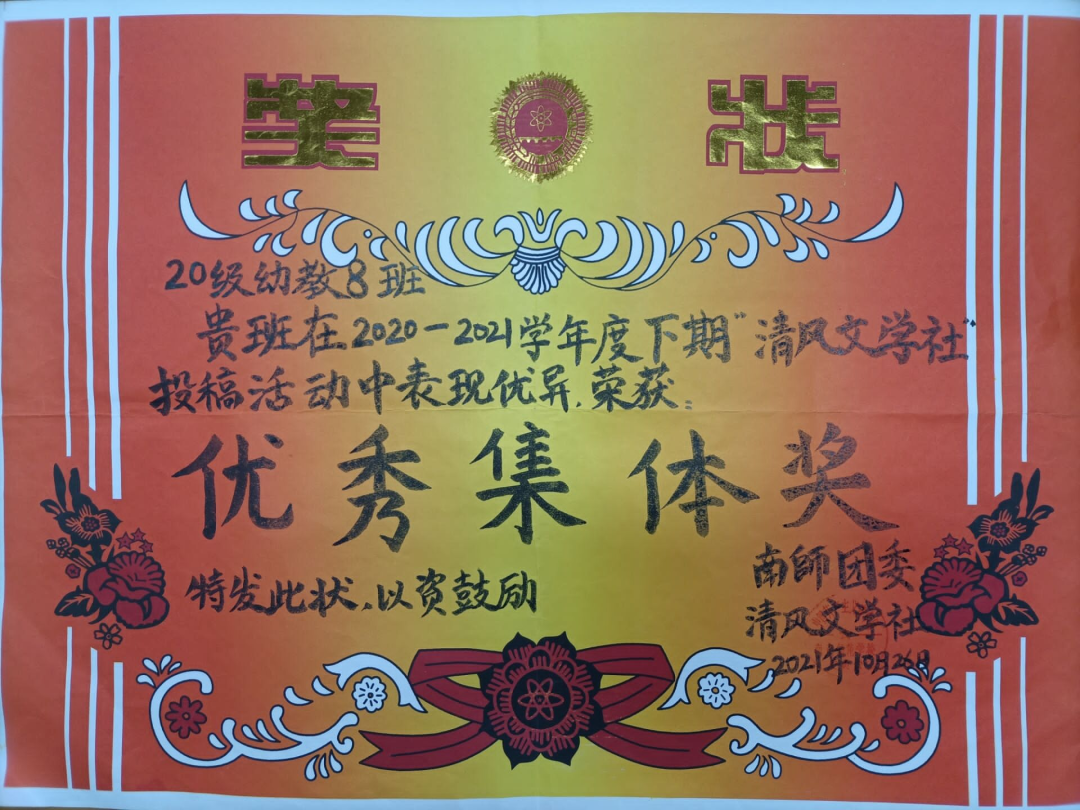 奖 状
20级幼教8班
贵班在2020-2021学年度下期"清风文学社"
投稿活动中表现优异,荣获:
优秀集体奖
特发此状,以资鼓励
南師团委
清风文学社
2021年10月26日